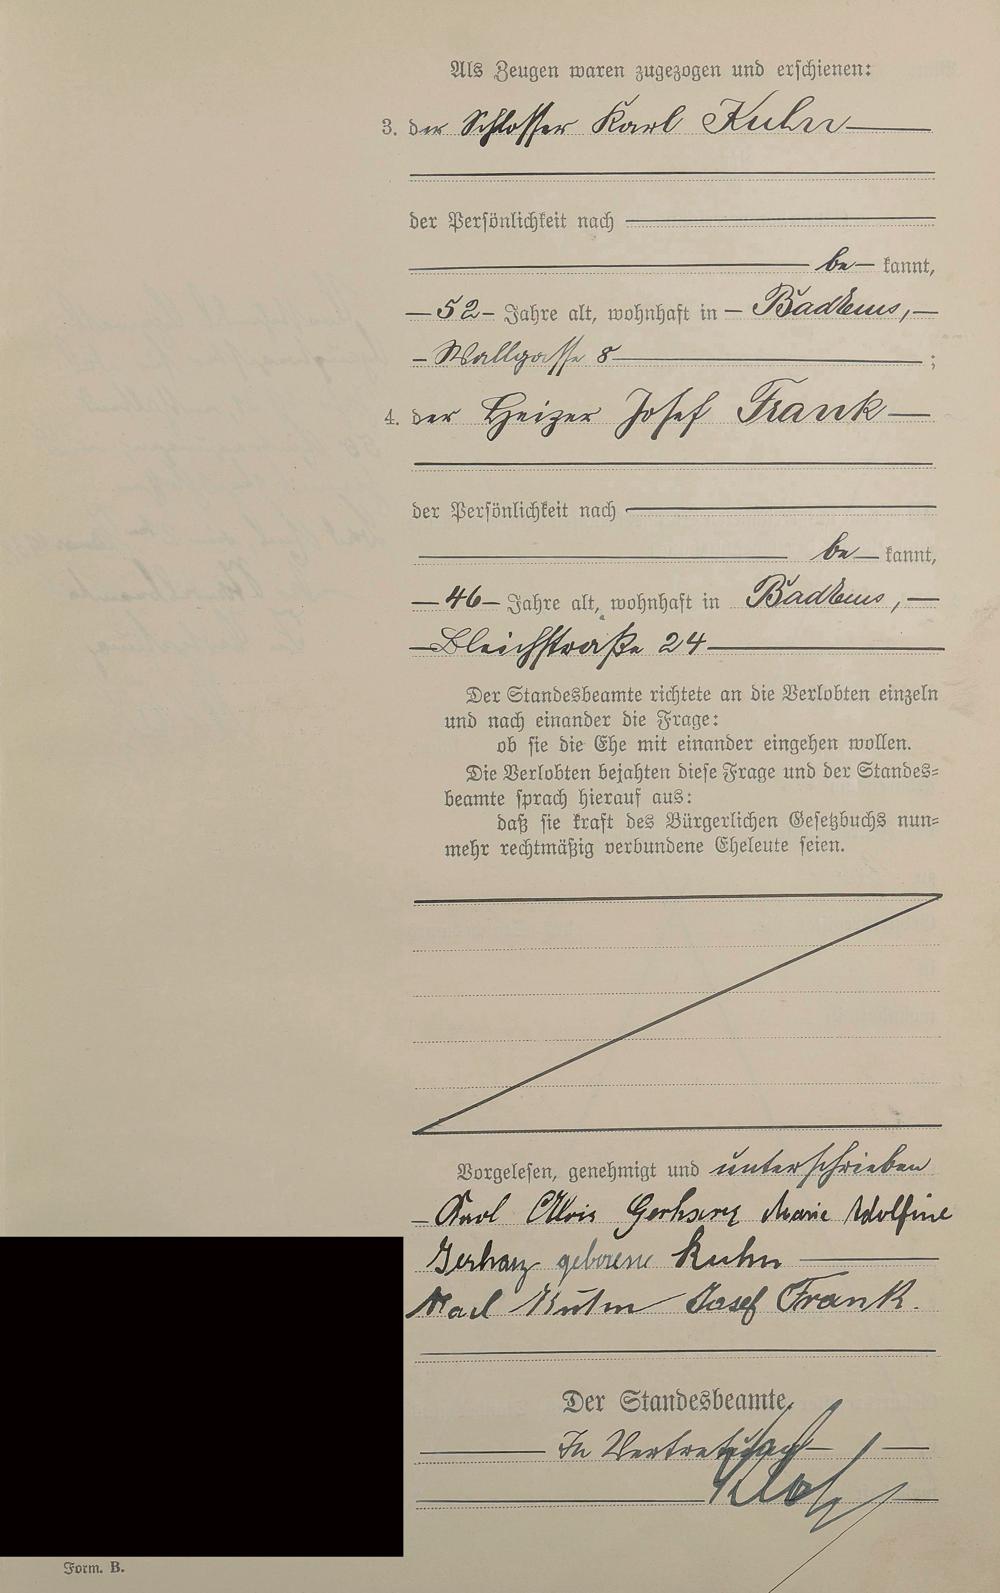 Als Zeugen waren zugezogen und erschienen:
3. der Schlosser Karl Kuhn
der Persönlichkeit nach
be kannt,
52 Jahre alt, wohnhaft in Bad Ems,
Wallgasse 8 ;
4. der Heizer Josef Frank
der Persönlichkeit nach
be kannt,
46 Jahre alt, wohnhaft in Bad Ems,
Bleichstraße 24
Der Standesbeamte richtete an die Verlobten einzeln
und nach einander die Frage:
ob sie die Ehe mit einander eingehen wollen.
Die Verlobten bejahten diese Frage und der Standes=
beamte sprach hierauf aus:
daß sie kraft des Bürgerlichen Gesetzbuchs nun=
mehr rechtmäßig verbundene Eheleute seien.
Vorgelesen, genehmigt und unterschrieben
Karl Alois Gerharz Marie Adolfine
Gerharz geborene Kuhn
Karl Kuhn Josef Frank.
Der Standesbeamte.
In Vertretung
Form. B.